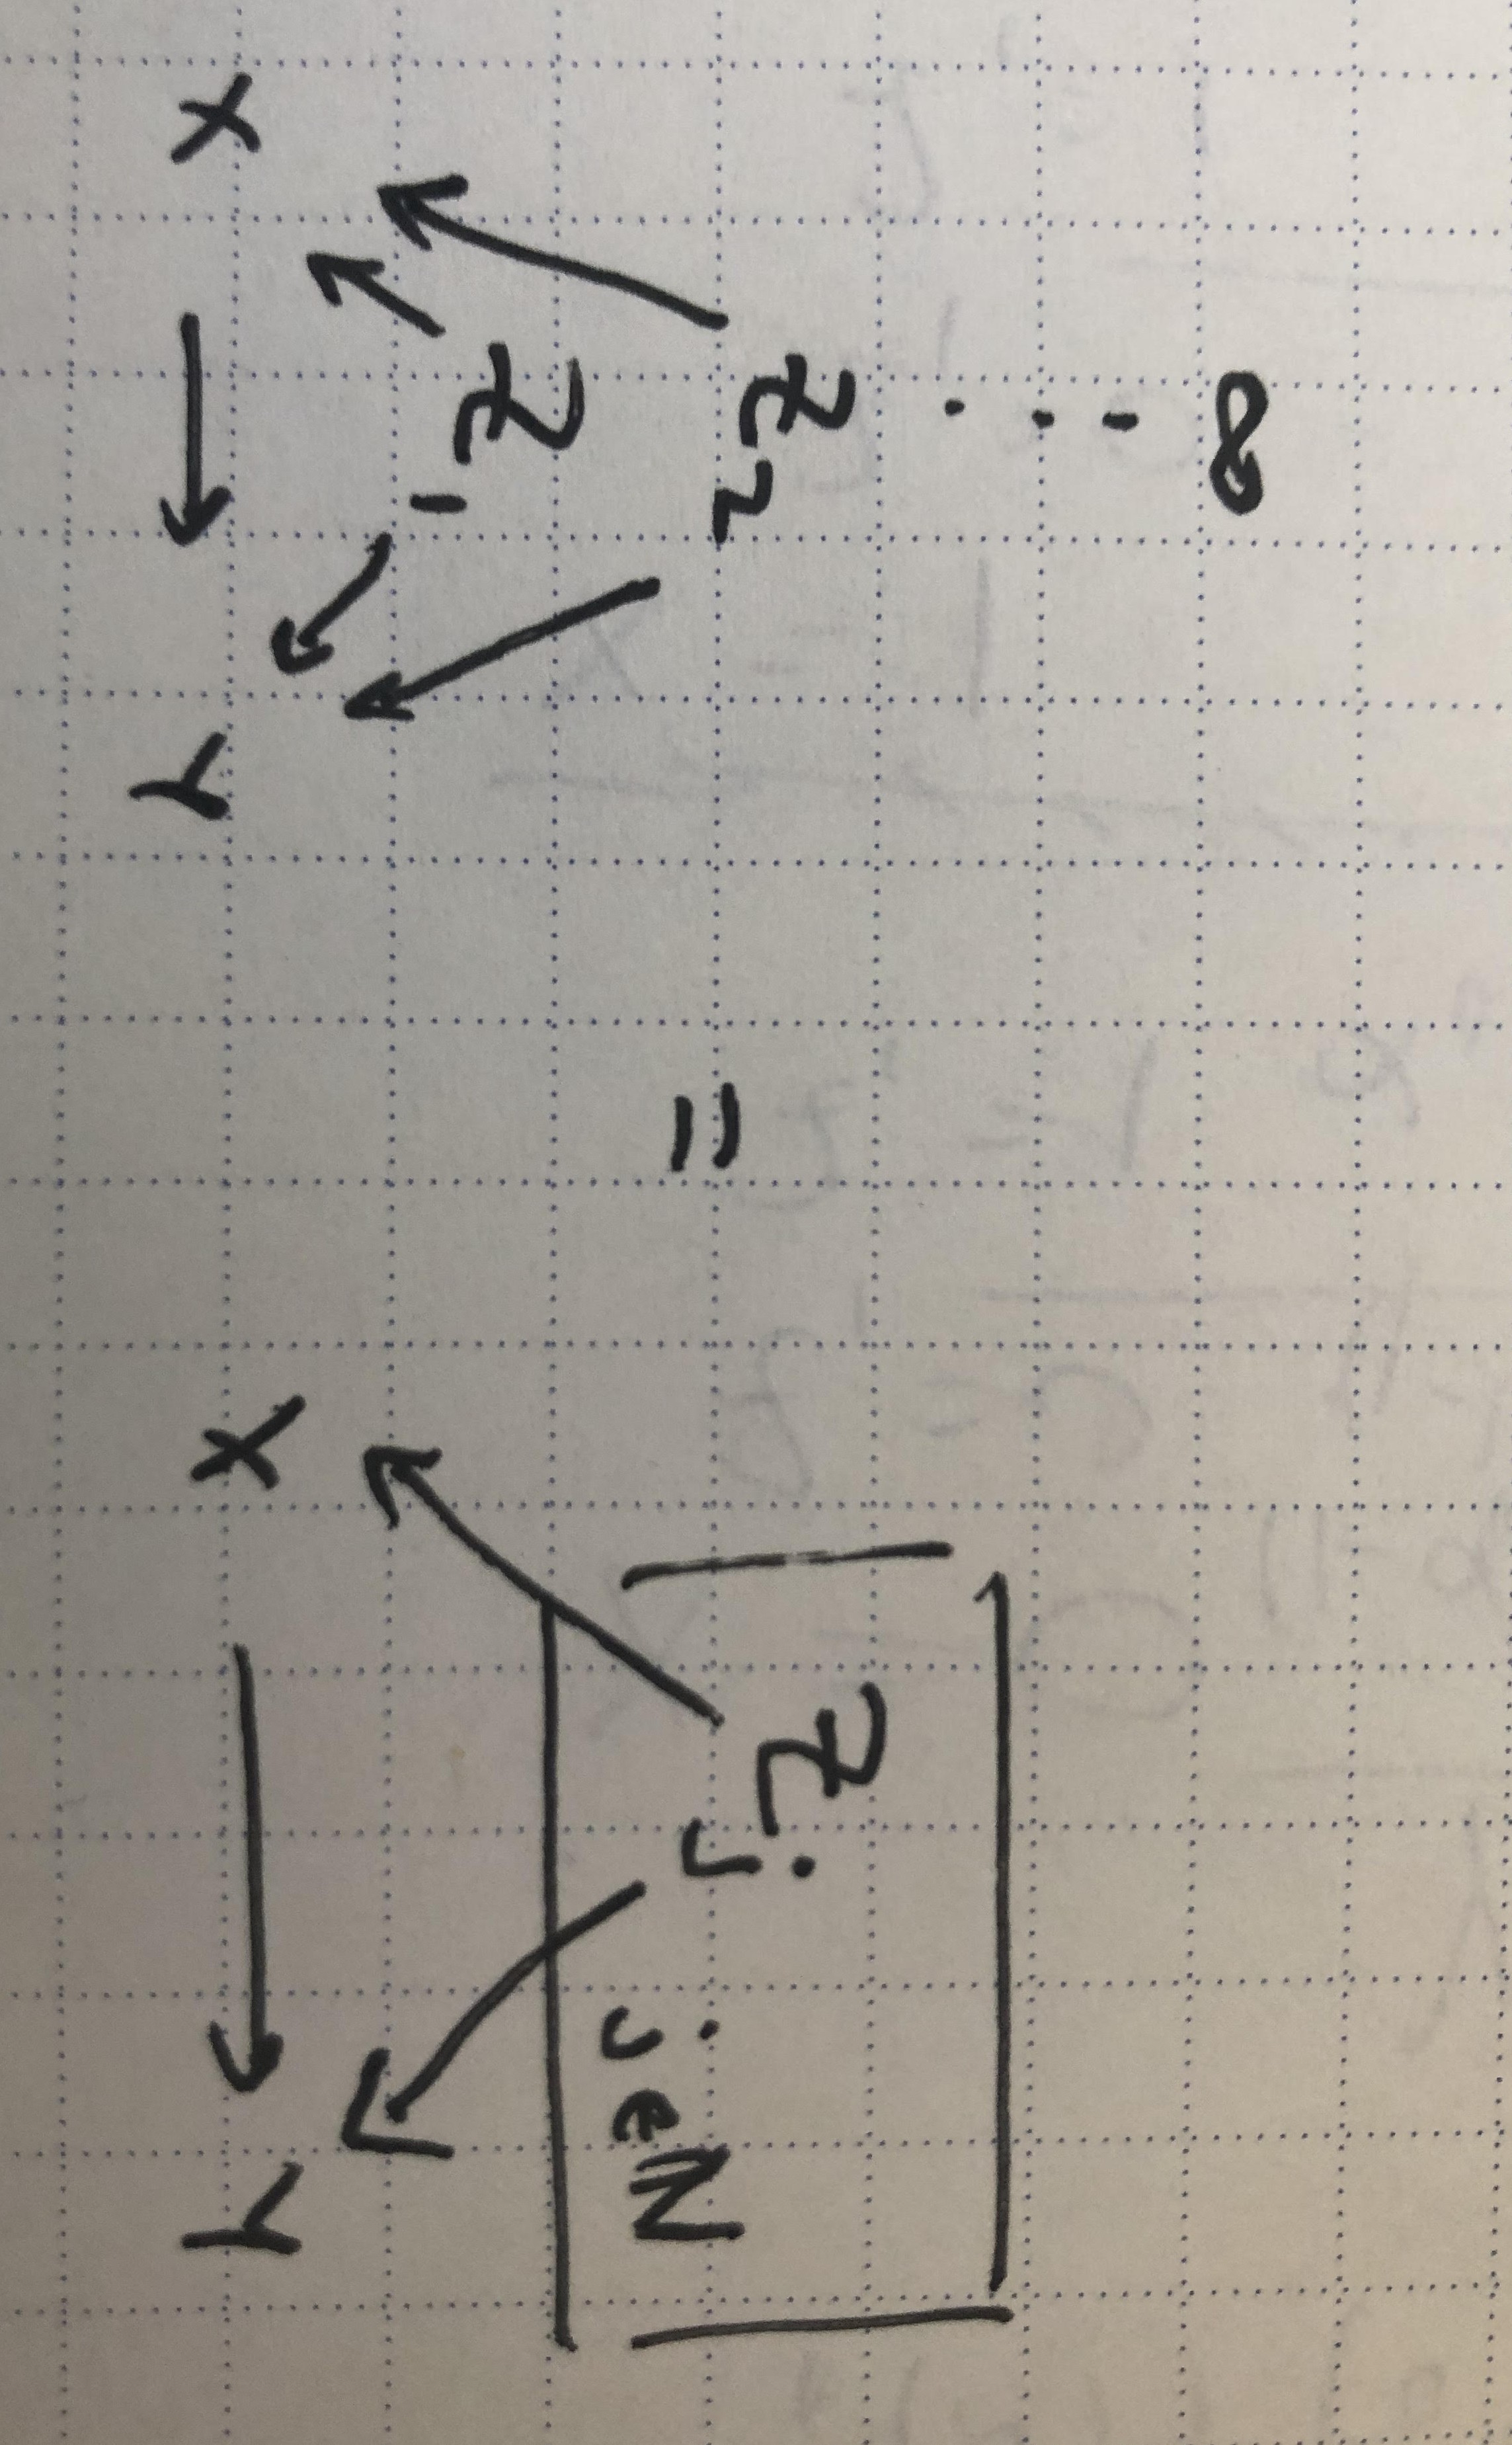 ∞
Z₂
Z₁
X → Y
=
Zⱼ
j∈N
X → Y